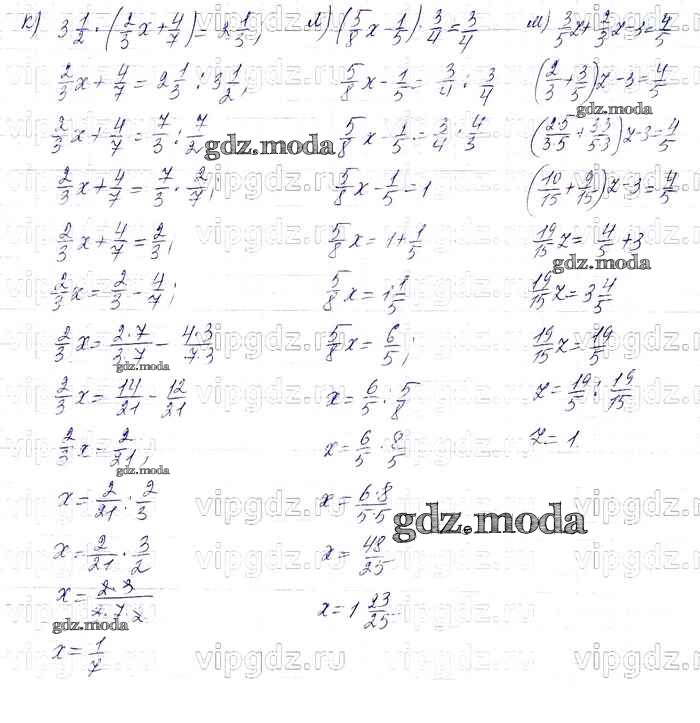 к) 3 1/2 · (2/3 x + 4/7) = 2 1/3;
2/3 x + 4/7 = 2 1/3 : 3 1/2;
2/3 x + 4/7 = 7/3 : 7/2
2/3 x + 4/7 = 7/3 · 2/7;
2/3 x + 4/7 = 2/3;
2/3 x = 2/3 - 4/7;
2/3 x = 2·7/3·7 - 4·3/7·3
2/3 x = 14/21 - 12/21
2/3 x = 2/21;
x = 2/21 : 2/3
x = 2/21 · 3/2
x = 2·3/2·7·2
x = 1/7
л) (5/8 x - 1/5) · 3/4 = 3/4
5/8 x - 1/5 = 3/4 : 3/4
5/8 x - 1/5 = 3/4 · 4/3
5/8 x - 1/5 = 1
5/8 x = 1 + 1/5
5/8 x = 1 1/5
5/8 x = 6/5;
x = 6/5 : 5/8
x = 6/5 · 8/5
x = 6·8/5·5
x = 48/25
x = 1 23/25
м) 3/5 z + 2/3 z - 3 = 4/5
(2/3 + 3/5) z - 3 = 4/5
(2·5/3·5 + 3·3/5·3) z - 3 = 4/5
(10/15 + 9/15) z - 3 = 4/5
19/15 z = 4/5 + 3
19/15 z = 3 4/5
19/15 z = 19/5
z = 19/5 : 19/15
z = 1
gdz.moda
gdz.moda
gdz.moda
gdz.moda
gdz.moda
gdz.moda
gdz.moda
vipgdz.ru